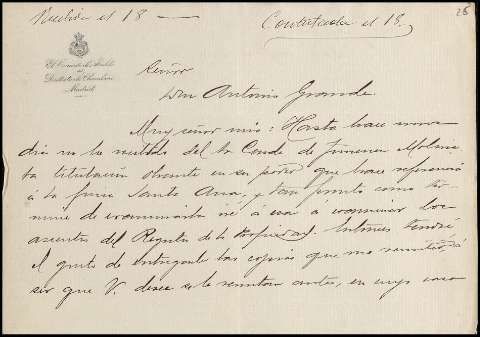 Recibida el 18
Contestada el 18.
26
El Teniente de Alcalde
del
Distrito de Chamberí
Madrid
Señor
Don Antonio Grande
Muy señor mio: Hasta hace unos
dias no he recibido del Sr Conde de Jimenez Molina
la titulación obrante en su poder que hace referencia
á la finca Santa Ana, y tan pronto como ter-
mine de examinarla iré á esa á examinar los
asientos del Registro de la Propiedad. Entonces tendré
el gusto de entregarle las copias que me remitió, á
ser que V. desee se le remitan antes, en cuyo caso